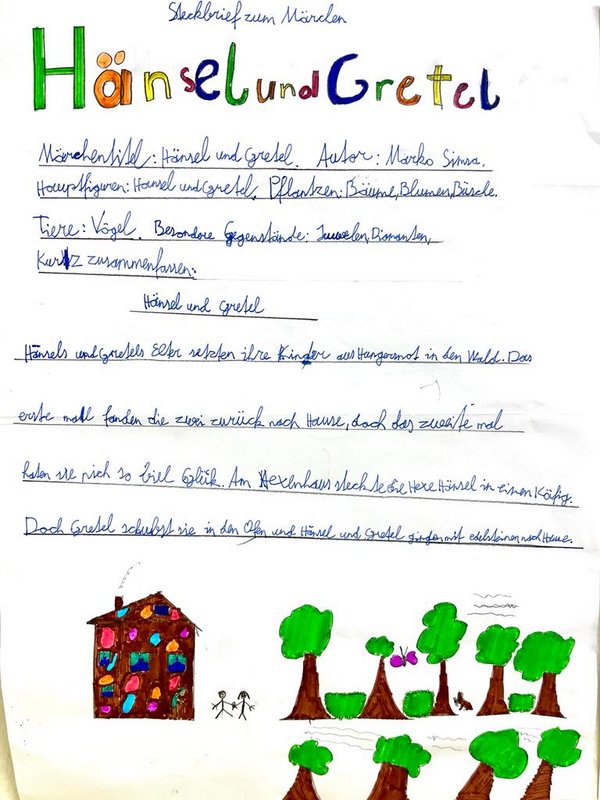 Steckbrief zum Märchen
Hänsel und Gretel
Märchentitel: Hänsel und Gretel. Autor: Marko Simsa.
Hauptfiguren: Hänsel und Gretel. Pflantzen: Bäume, Blumen, Büsche.
Tiere: Vögel. Besondere Gegenstände: Juwelen, Diamanten,
Kurtz zusammenfassen:
Hänsel und Gretel
Hänsels und Gretels Elter setzten ihre Kinder aus Hungersnot in den Wald. Das
erste mall fanden die zwei zurück nach Hause, doch das zweite mal
haten sie nich so viel Glük. Am Hexenhaus steckte die Hexe Hänsel in einen Käfig.
Doch Gretel schubst sie in den Ofen und Hänsel und Gretel gingen mit edelsteinen nach Hause.